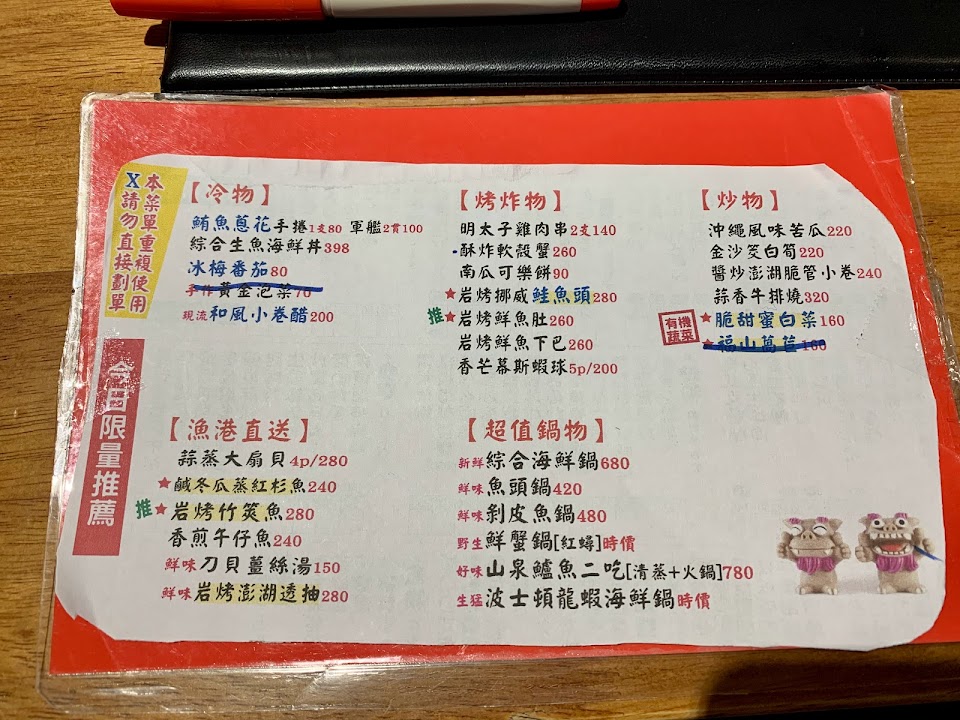 本菜單重複使用
X請勿直接劃單
今日限量推薦
【冷物】
鮪魚蔥花手捲1支80 軍艦2貫100
綜合生魚海鮮丼398
冰梅番茄80
手作黃金泡菜70
現流和風小卷醋200
【烤炸物】
明太子雞肉串2支140
酥炸軟殼蟹260
南瓜可樂餅90
★岩烤挪威鮭魚頭280
推★岩烤鮮魚肚260
岩烤鮮魚下巴260
香芒幕斯蝦球5p/200
【炒物】
沖繩風味苦瓜220
金沙筊白筍220
醬炒澎湖脆管小卷240
蒜香牛排燒320
有機蔬菜
★脆甜蜜白菜160
★福山萵苣160
【漁港直送】
蒜蒸大扇貝4p/280
★鹹冬瓜蒸紅杉魚240
推★岩烤竹筴魚280
香煎午仔魚240
鮮味刀貝薑絲湯150
鮮味岩烤澎湖透抽280
【超值鍋物】
新鮮綜合海鮮鍋680
鮮味魚頭鍋420
鮮味剝皮魚鍋480
野生鮮蟹鍋[紅蟳]時價
好味山泉鱸魚二吃[清蒸+火鍋]780
生猛波士頓龍蝦海鮮鍋時價